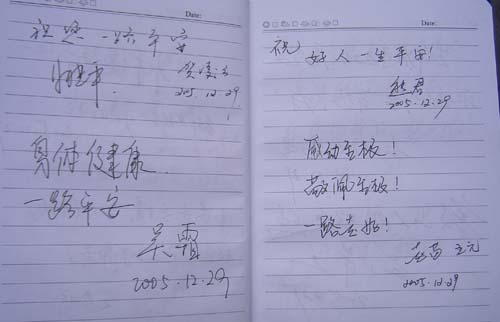 Date:
祝您一路平安
2005.12.29
身体健康.
一路平安
吴霜
2005.12.29
Date:
祝
好人一生平安!
2005.12.29
感动至极!
敬佩至极!
一路走好!
2005.12.29